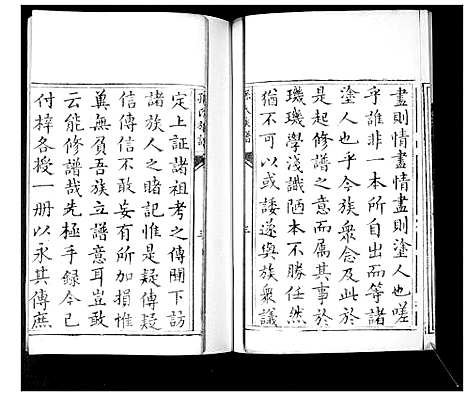 盡則情盡情盡則塗人也嗟
乎誰非一本所自出而等諸
塗人也乎今族衆念及此於
是起修譜之意而属其事於
璣璣學淺識陋本不勝任然
猶不可以或諉遂與族衆議
定上証諸祖考之傳聞下訪
諸族人之睹記惟是疑傳疑
信傳信不敢妄有所加損惟
兾無負吾族立譜意耳豈敢
云能修譜哉先極手録今已
付梓各授一册以永其傳庶
族譜
三
三